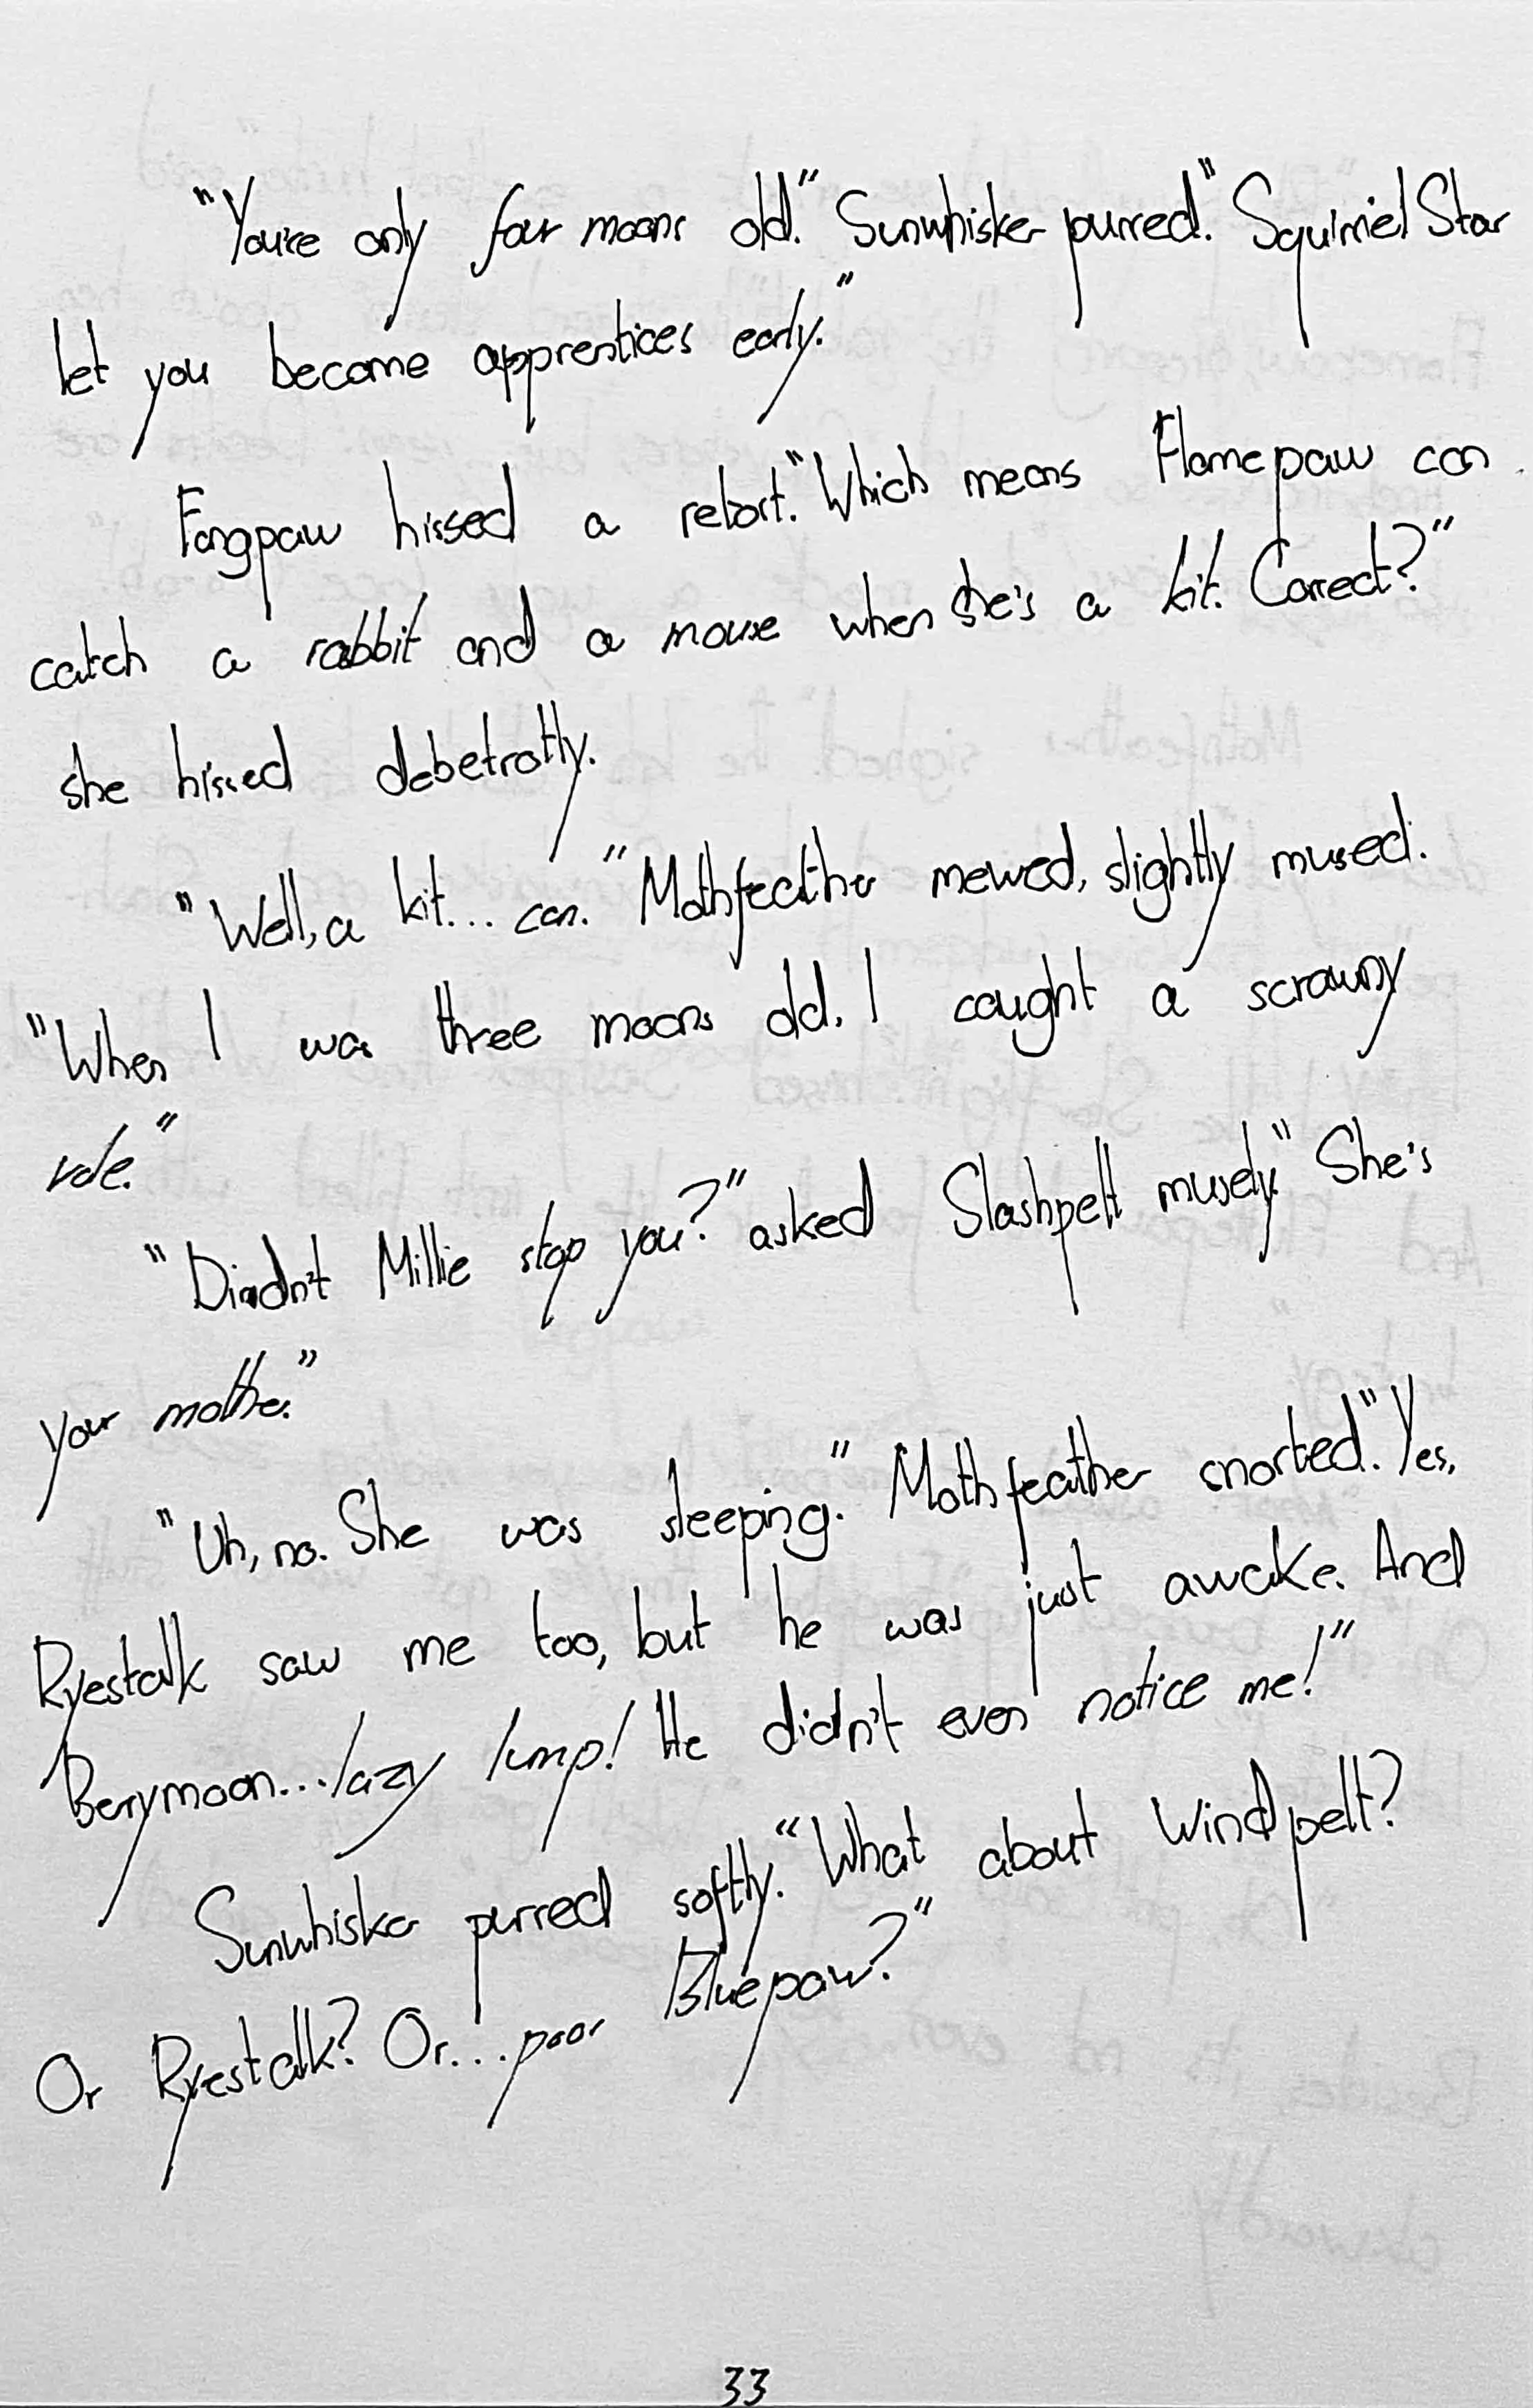 "You're only four moons old." Sunwhisker purred." Squirriel Star
let you become apprentices early."
Fangpaw hissed a retort."Which means Flamepaw can
catch a rabbit and a mouse when she's a kit. Correct?"
she hissed debetrotly.
"Well, a kit... can." Mothfeather mewed, slightly mused.
"When I was three moons old, I caught a scrawny
vole."
"Diadn't Millie stop you?" asked Slashpelt musely." She's
your mother."
"Uh, no. She was sleeping." Mothfeather snorted."Yes,
Ryestalk saw me too, but he was just awake. And
Berrymoon... lazy lump! He didn't even notice me!"
Sunwhisker purred softly. "What about Windpelt?
Or Ryestalk? Or... poor Bluepaw?"
33